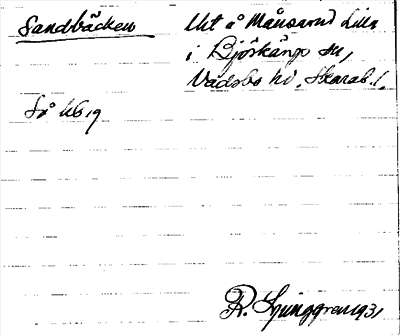 Sandbäcken
Ut å Månsarud Lilla
i Björkängs sn,
Vadsbo hd, Skarab. l.
Så UG 19
R. Ljunggren 1931